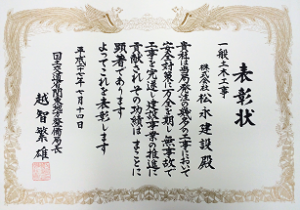 表彰状
一般土木工事
株式会社 松永建設殿
貴社は当局発注の幾多の工事において
安全対策に万全を期し無事故で
工事を完遂し建設事業の推進に
貢献されその功績はまことに
顕著であります
よってこれを表彰します
平成十七年七月十四日
国土交通省関東地方整備局長
越智繁雄